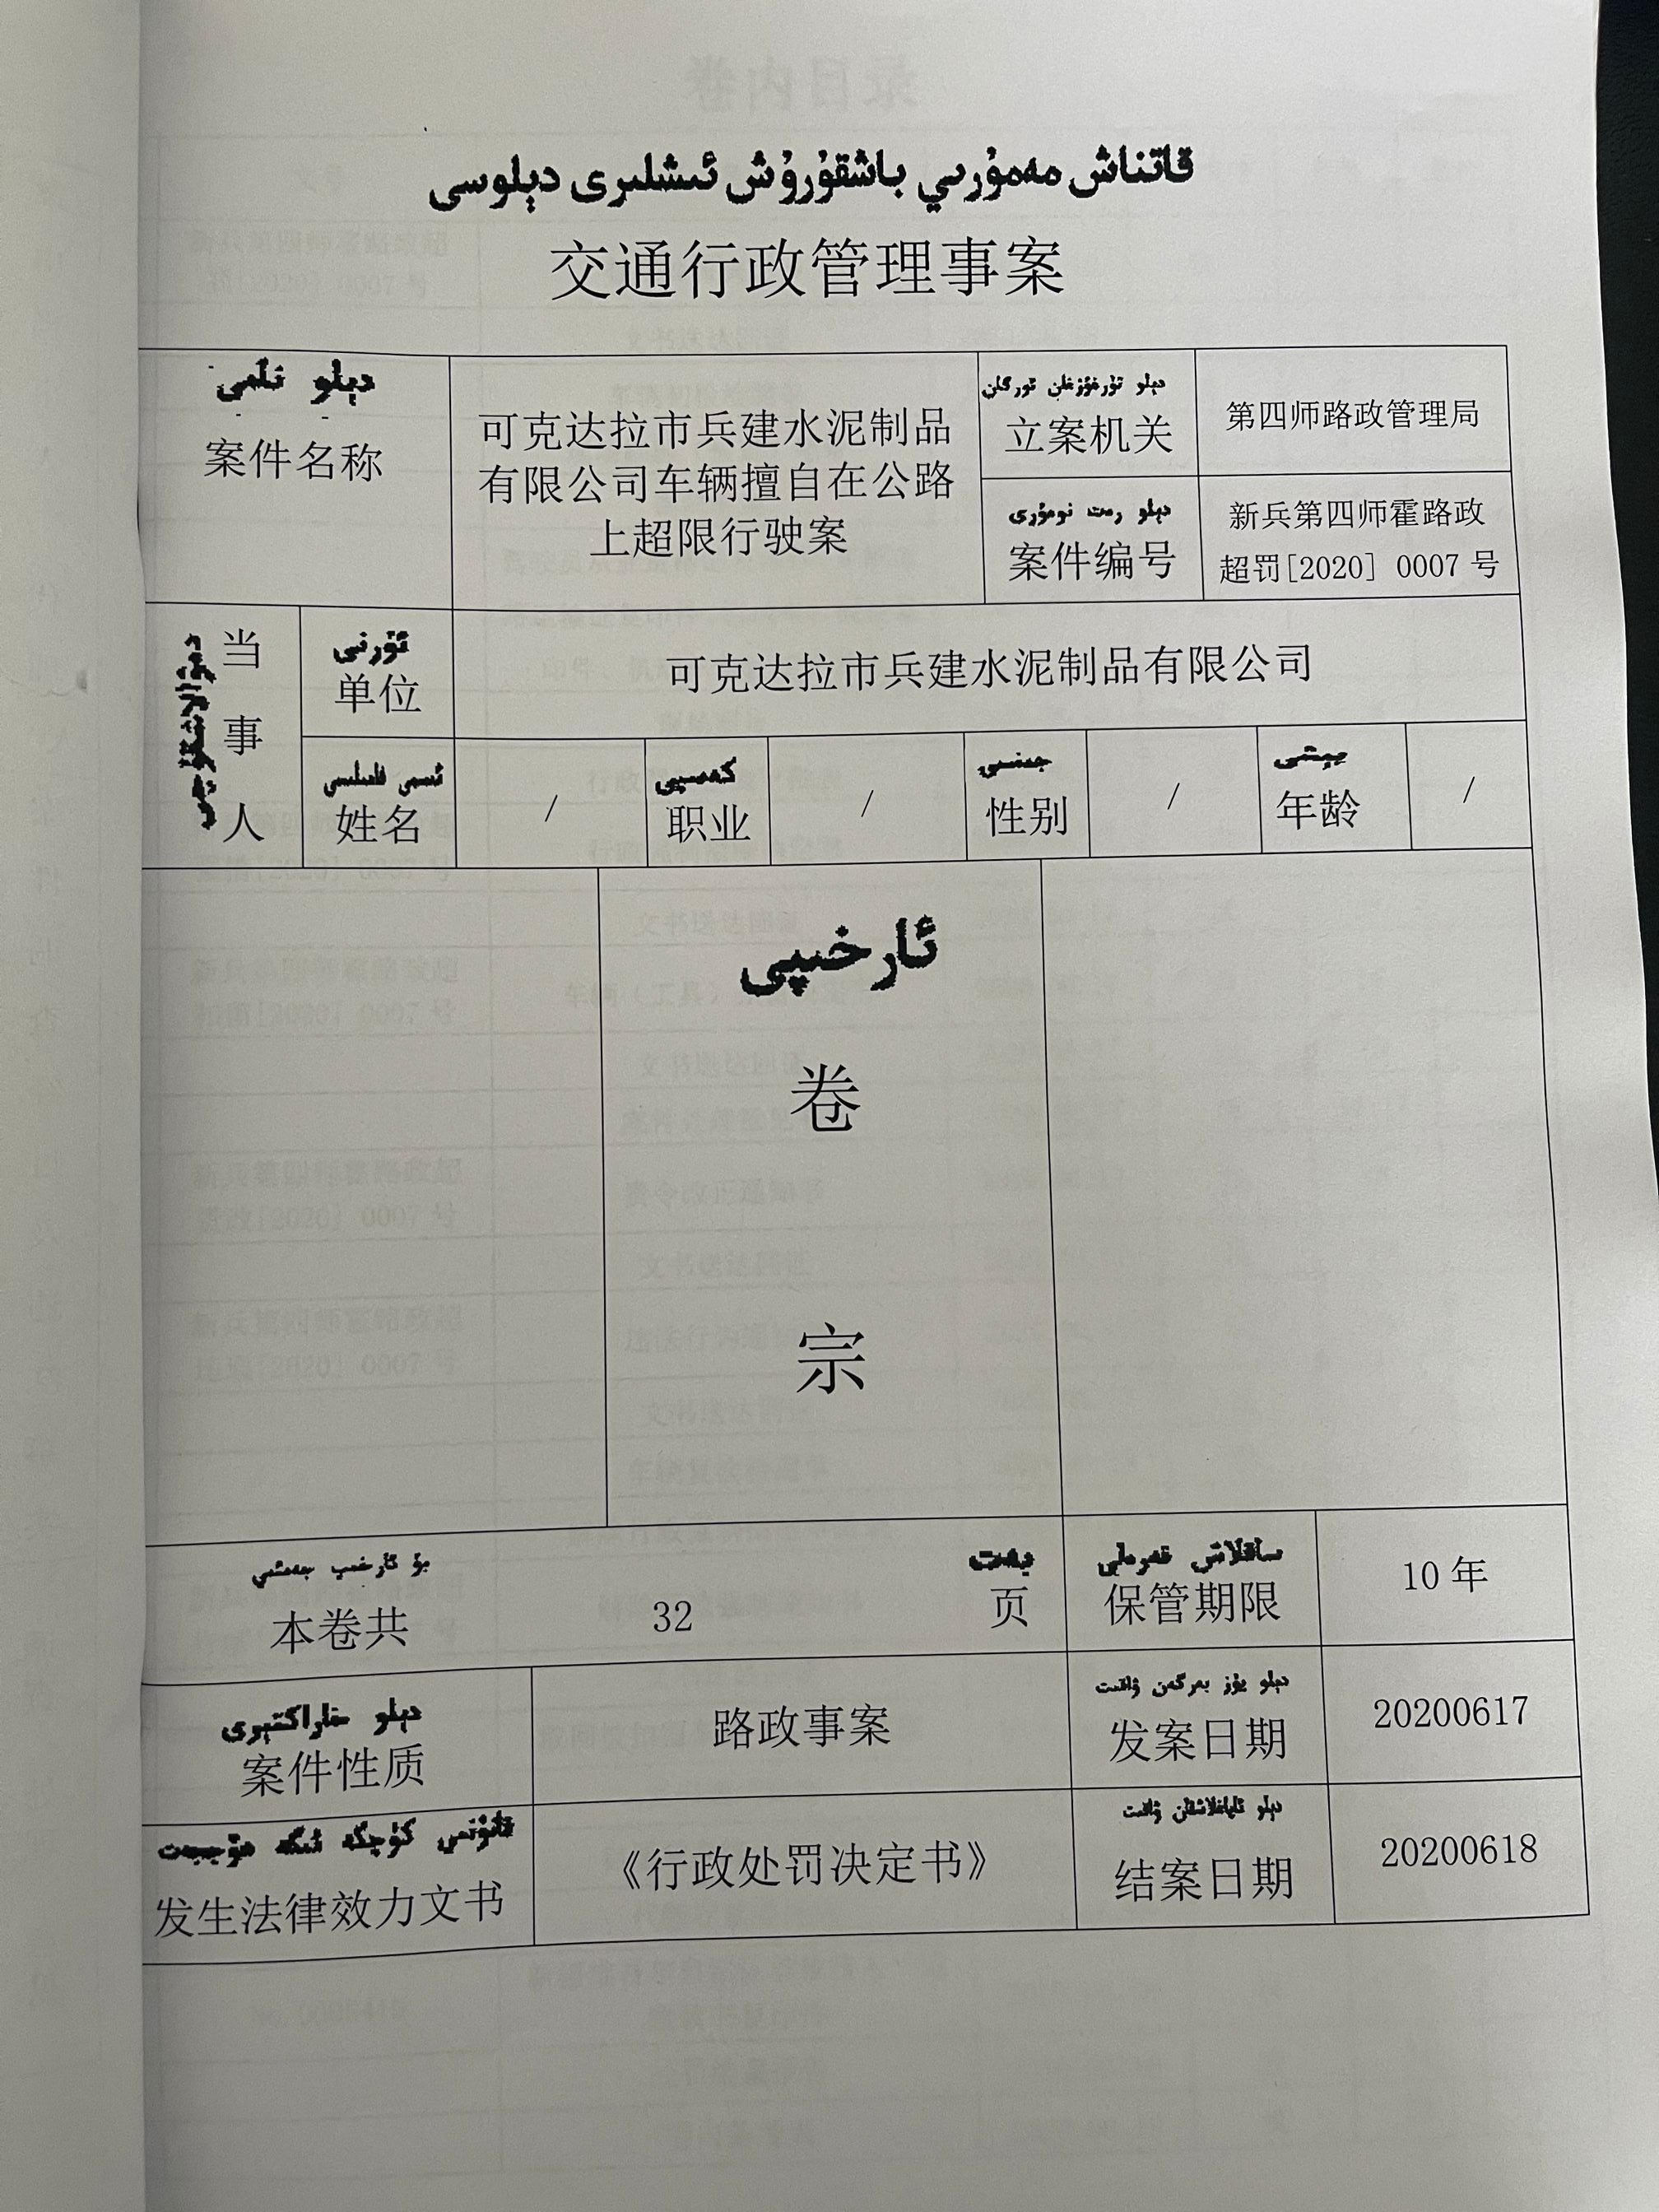 قاتناش مەمۇرىي باشقۇرۇش ئىشلىرى دېلوسى
交通行政管理事案
دېلو نامى
案件名称
可克达拉市兵建水泥制品
有限公司车辆擅自在公路
上超限行驶案
دېلو تۇرغۇزغان ئورگان
立案机关
第四师路政管理局
دېلو رەت نومۇرى
案件编号
新兵第四师霍路政
超罚[2020] 0007 号
当事人
ئورنى
单位
可克达拉市兵建水泥制品有限公司
ئىسمى فامىلىسى
姓名
/
كەسپى
职业
/
جىنسى
性别
/
يېشى
年龄
/
ئارخىپى
卷
宗
بۇ ئارخىپ جەمئىي
本卷共
32
بەت
页
ساقلاش قەرەلى
保管期限
10 年
دېلو خاراكتېرى
案件性质
路政事案
دېلو يۈز بەرگەن ۋاقىت
发案日期
20200617
قانۇنىي كۈچكە ئىگە ھۆججەت
发生法律效力文书
《行政处罚决定书》
دېلو ئاياغلاشقان ۋاقىت
结案日期
20200618